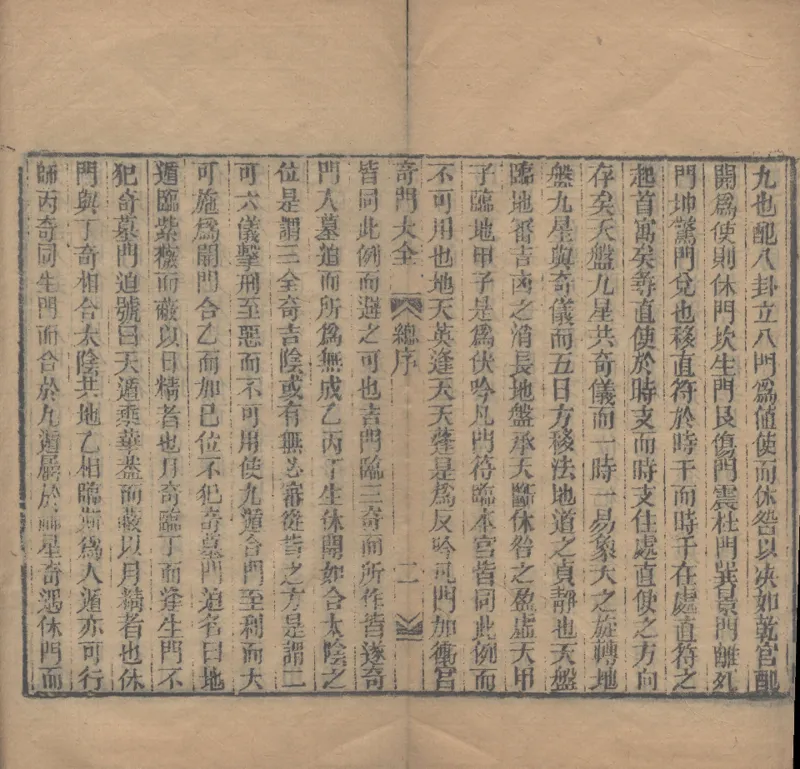 九也配八卦立八門爲值使而休咎以决如乾宮配
開爲使則休門坎生門艮傷門震杜門巽景門離死
門坤驚門兌也移直符於時干而時干在處直符之
起首寓矣尋直使於時支而時支住處直使之方向
存矣天盤九星共奇儀而一時一易象天之旋轉地
盤九星與奇儀而五日方移法地道之貞靜也天盤
臨地審吉凶之消長地盤承天斷休咎之盈虛天甲
子臨地甲子是爲伏吟凡門符臨本宮皆同此例而
不可用也地天英逢天天蓬是爲反吟凡門加衝宮
奇門大全 總序 二
皆同此例而避之可也吉門臨三奇而所作皆遂奇
門入墓迫而所爲無成乙丙丁生休開如合太陰之
位是謂三全奇吉陰或有無必審從皆之方是謂二
可六儀擊刑至惡而不可用使九遁合門至利而大
可施爲開門合乙而加己位不犯奇墓門迫名曰地
遁臨紫微而蔽以日精者也月奇臨丁而逢生門不
犯奇墓門迫號曰天遁乘華蓋而蔽以月精者也休
門與丁奇相合太陰共地乙相臨斯爲人遁亦可行
師丙奇同生門而合於九遁屬於 星奇遇休門而